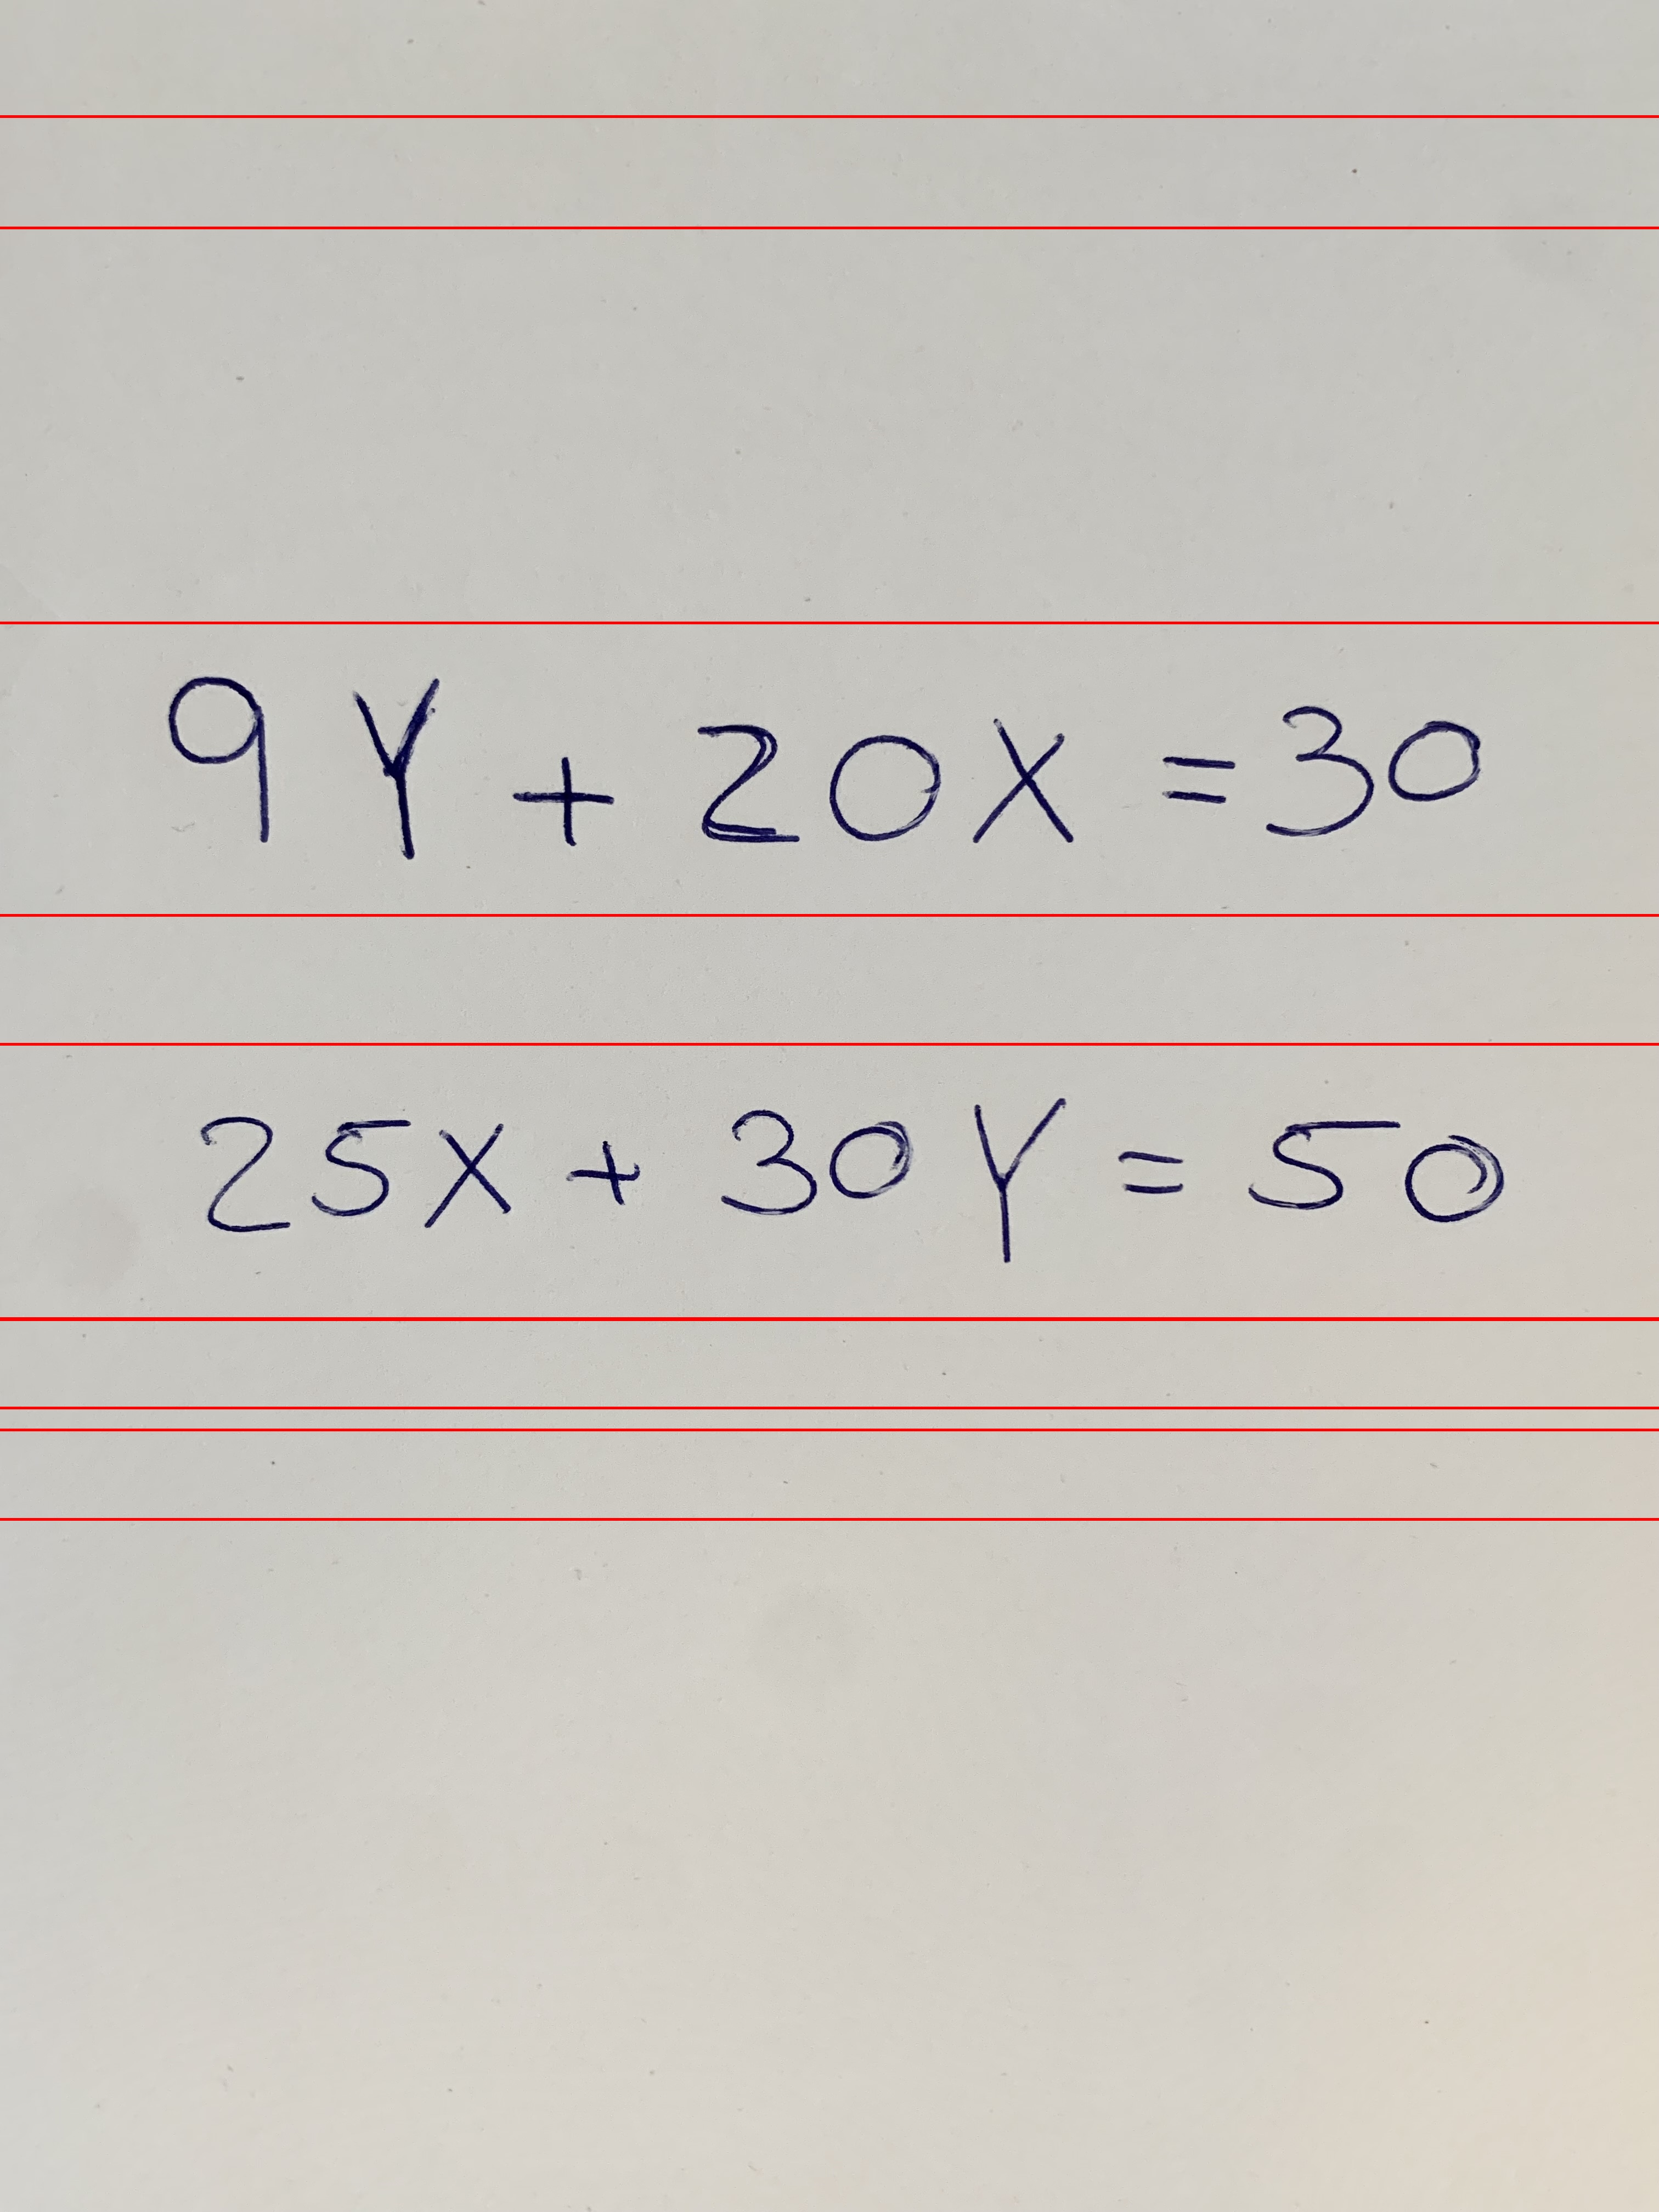 9Y + 20X = 30
25X + 30Y = 50